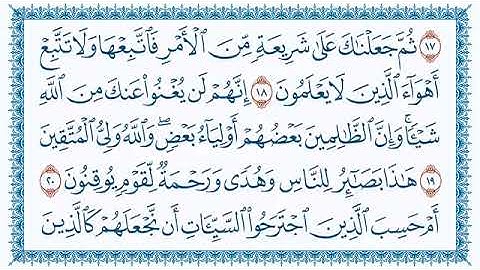 ١٧ ثُمَّ جَعَلْنَٰكَ عَلَىٰ شَرِيعَةٍ مِّنَ ٱلْأَمْرِ فَٱتَّبِعْهَا وَلَا تَتَّبِعْ
أَهْوَآءَ ٱلَّذِينَ لَا يَعْلَمُونَ ١٨ إِنَّهُمْ لَن يُغْنُوا۟ عَنكَ مِنَ ٱللَّهِ
شَيْـًٔا ۚ وَإِنَّ ٱلظَّٰلِمِينَ بَعْضُهُمْ أَوْلِيَآءُ بَعْضٍ ۖ وَٱللَّهُ وَلِىُّ ٱلْمُتَّقِينَ
١٩ هَٰذَا بَصَٰٓئِرُ لِلنَّاسِ وَهُدًى وَرَحْمَةٌ لِّقَوْمٍ يُوقِنُونَ ٢٠
أَمْ حَسِبَ ٱلَّذِينَ ٱجْتَرَحُوا۟ ٱلسَّيِّـَٔاتِ أَن نَّجْعَلَهُمْ كَٱلَّذِينَ